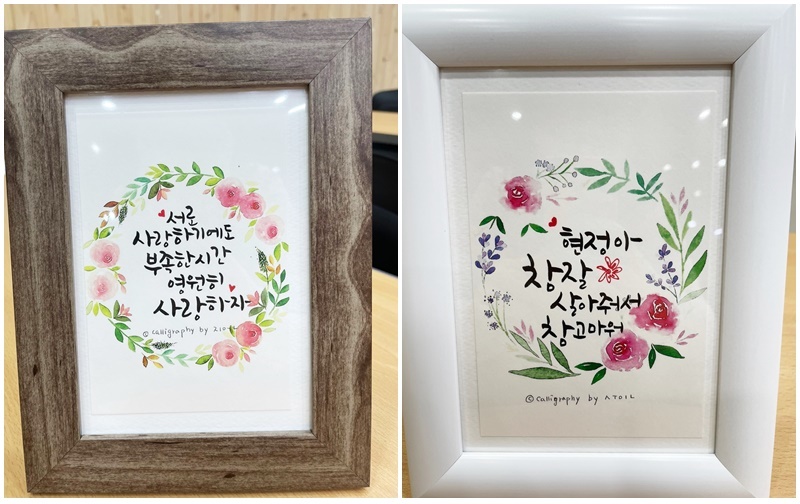 서로
사랑하기에도
부족한시간
영원히
사랑하자
ⓒ calligraphy by
현정아
참잘
살아줘서
참고마워
ⓒ calligraphy by